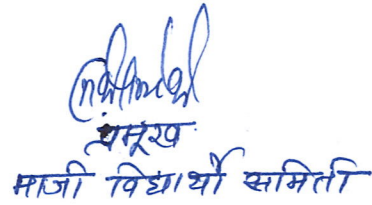 प्रमूख
माजी विद्यार्थी समिती